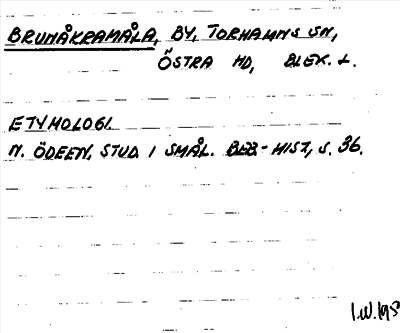 BRUNÅKRAMÅLA, BY, TORHAMNS SN,
ÖSTRA HD, BLEK. L.
ETYMOLOGI.
N. ÖDEEN, STUD I SMÅL. BEB-HIST, S. 36.
I.W.